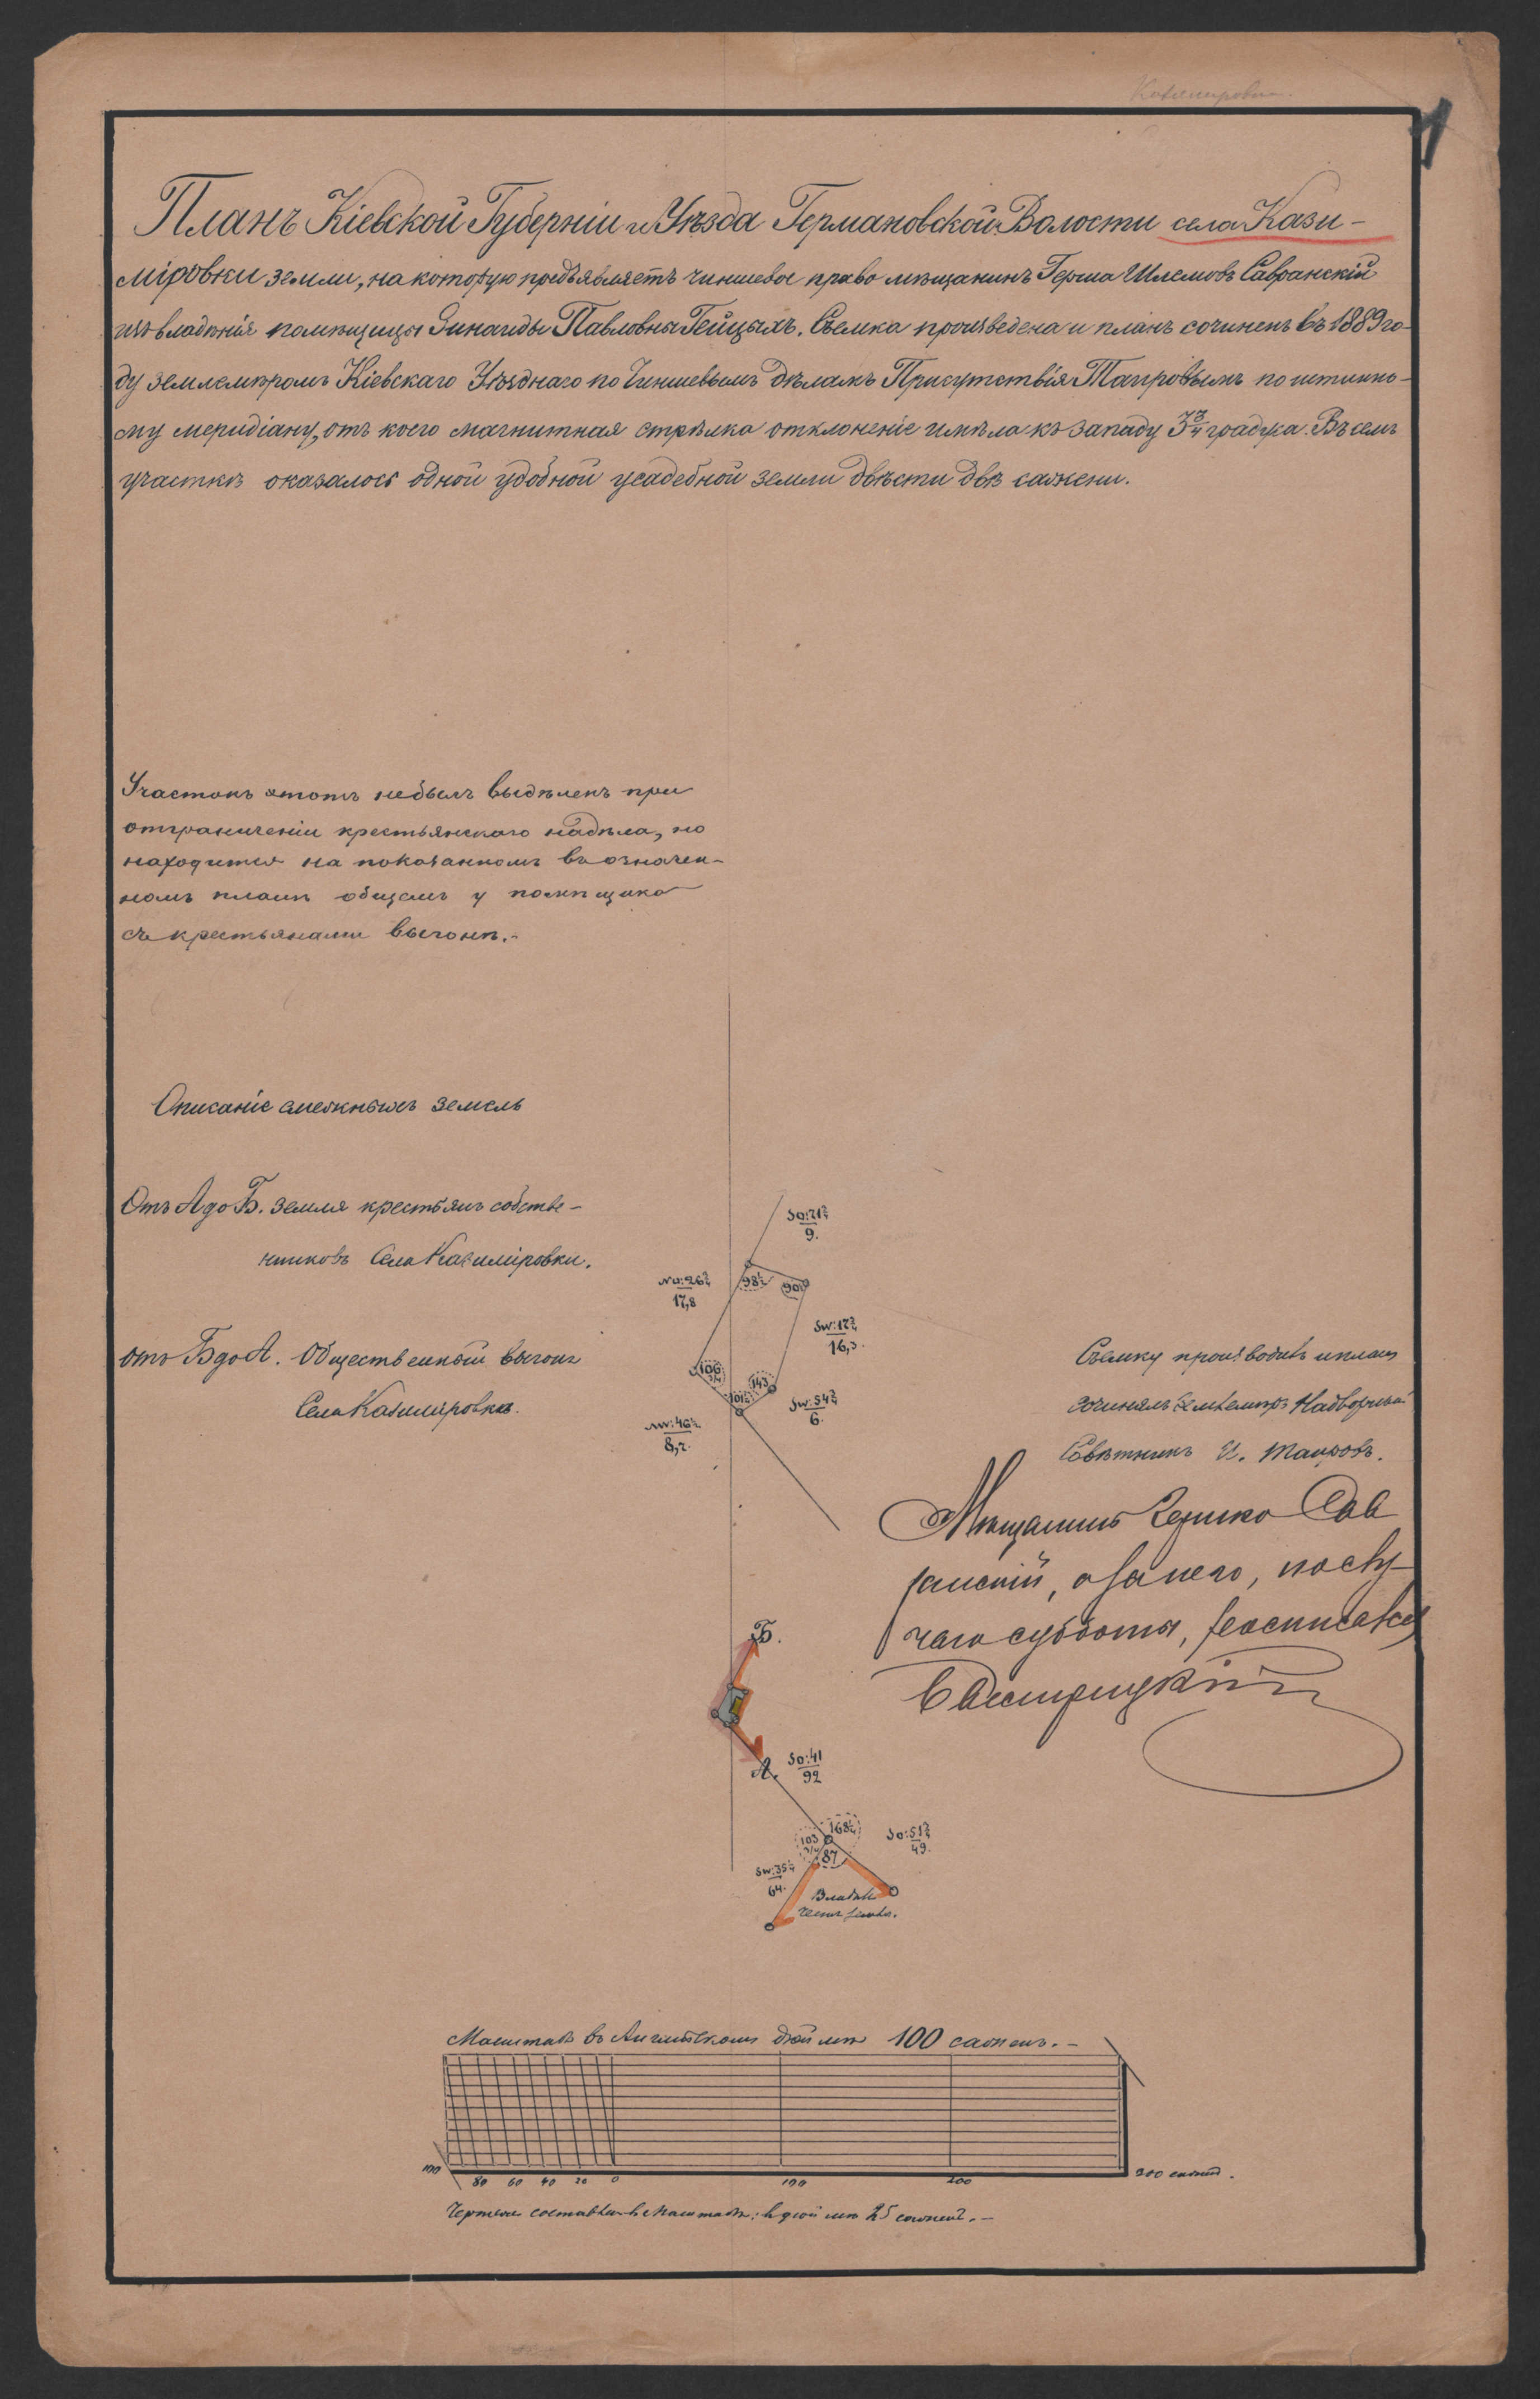 Казимировка.
1
Планъ Кіевской Губерніи и Уѣзда Германовской Волости села Кази-
міровки земли, на которую предъявляетъ чиншевое право мѣщанинъ Герша Шлемовъ Савранскій
изъ владѣнія помѣщицы Зинаиды Павловны Гейцыхъ. Съемка произведена и планъ сочиненъ въ 1889 го-
ду землемѣромъ Кіевскаго Уѣзднаго по Чиншевымъ дѣламъ Присутствія Таировымъ по истинно-
му меридіану, отъ коего магнитная стрѣлка отклоненіе имѣла къ западу 3 3/4 градуса. Въ семъ
участкѣ оказалось одной удобной усадебной земли двѣсти двѣ сажени.
Участокъ этотъ небылъ выдѣленъ при
отграниченіи крестьянскаго надѣла, но
находится на показанномъ въ означен-
номъ планѣ общемъ у помѣщика
съ крестьянами выгонѣ.-
Описаніе смежныхъ земель
Отъ А до Б. земля крестьянъ собстве-
нниковъ Села Казиміровки.
отъ Б до А. Общественный выгонъ
Села Казиміровки.
So:71 3/4
9.
No:26 3/4
17,8
98 1/2
90
Sw:17 3/4
16,3.
106 3/4
143
101 1/2
Sw:54 3/4
6.
Nw:46 1/2
8,2.
Съемку производилъ и планъ
сочинялъ Землемѣръ Надворный
Совѣтникъ И. Таировъ.
Мѣщанинъ Гершко Сав
ранскій, а за него, по слу-
чаю субботы, росписался
Б.
А.
So:41
92
168 1/4
103 3/4
87
So:51 3/4
49.
Sw:35 1/4
64.
Владѣль
ческ. земля.
Масштабъ въ Англійскомъ дюймѣ 100 сажень.-
100 80 60 40 20 0 100 200 300 сажень.
Чертежъ составленъ въ масштабѣ: въ дюймѣ 25 сажень.-